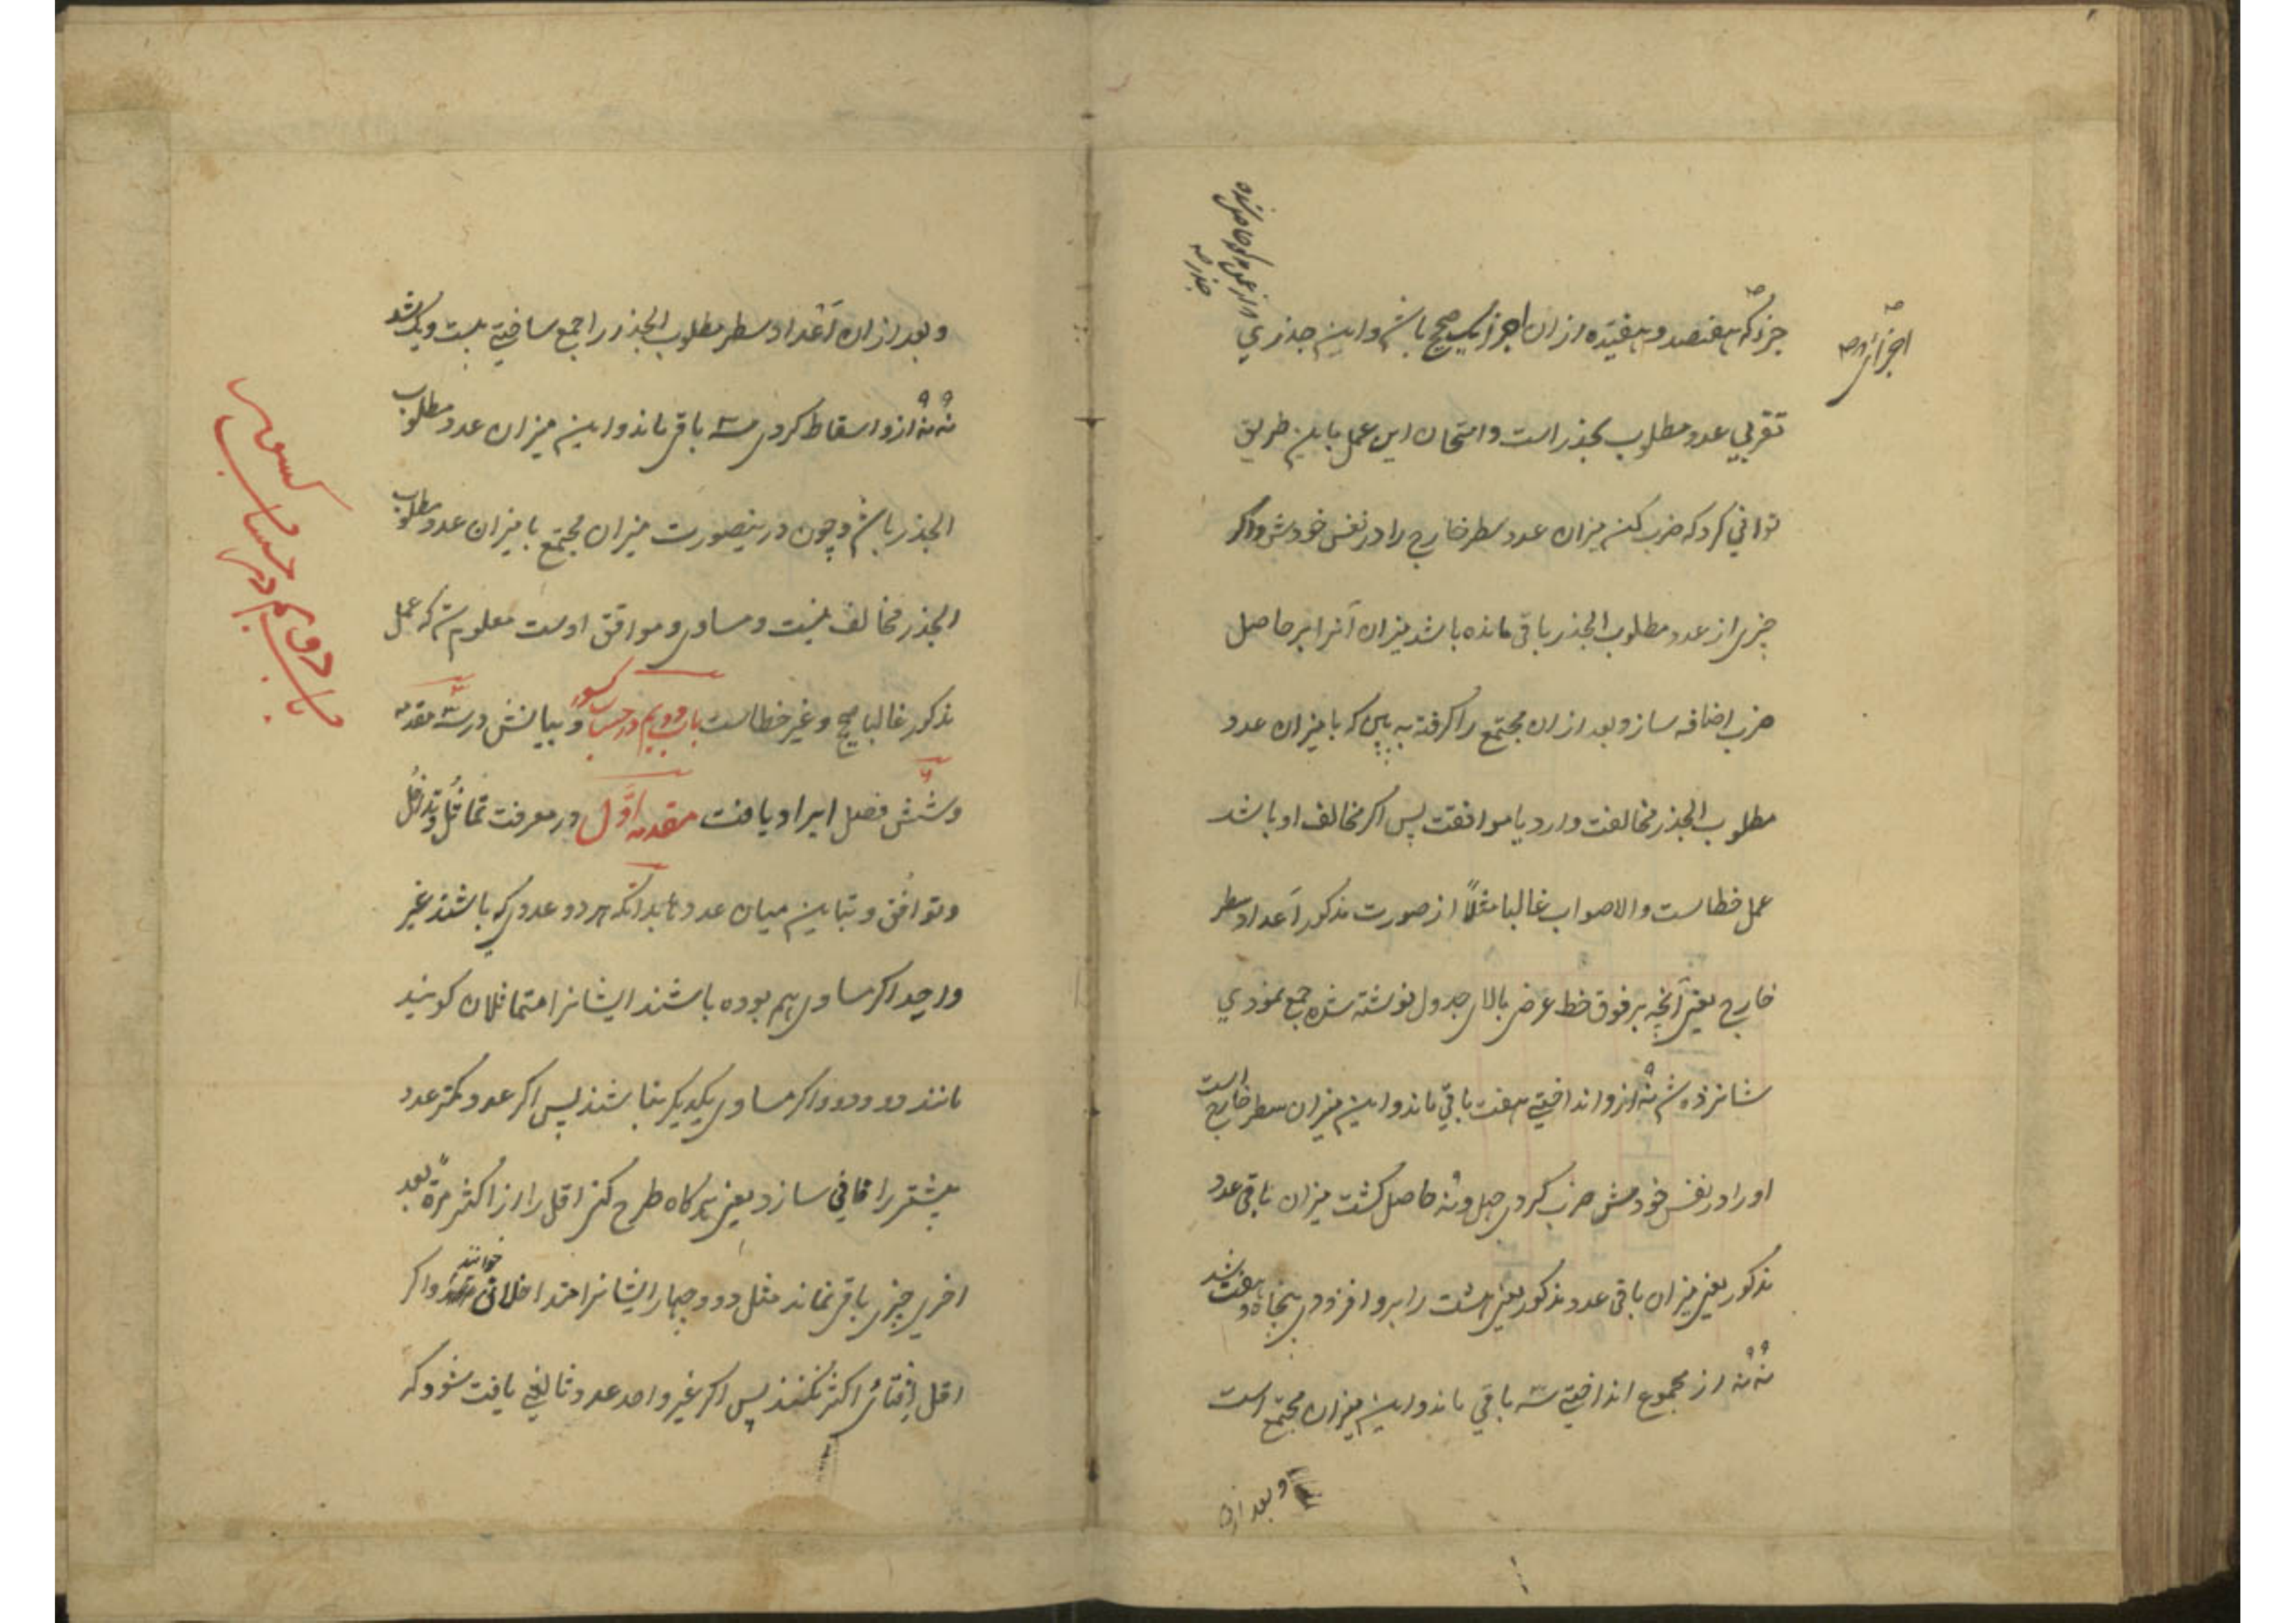 جزء که هفتصد و هفتده ازان اجزا یک صحیح باشد و این جذری
تقریبی عدد مطلوب الجذر است و امتحان این عمل باین طریق
توانی کرد که ضرب کنی میزان عدد سطر خارج را در نفس خودش و اگر
چیزی از عدد مطلوب الجذر باقی مانده باشد میزان آنرا بر حاصل
ضرب اضافه ساز و بعد ازان مجتمع را گرفته به بین که با میزان عدد
مطلوب الجذر مخالفت دارد یا موافقت پس اگر مخالف او باشد
عمل خطاست و الا صواب غالبا مثلاً از صورت مذکور اعداد سطر
خارج یعنی آنچه بر فوق خط عرضی بالای جدول نوشته شده جمع نمودی
شانزده شد نُه ازو انداختی هفت باقی ماند و این میزان سطر خارج است
او را در نفس خودش ضرب کردی چهل و نُه حاصل گشت میزان باقی عدد
مذکور یعنی میزان باقی عدد مذکور یعنی هشت را برو افزودی پنجاه و هفت شد
نُه نُه از مجموع انداختی سه باقی ماند و این میزان مجتمع است
و بعد ازان
و بعد ازان اعداد سطر مطلوب الجذر را جمع ساختی بیست و یک شد
نُه نُه ازو اسقاط کردی سه باقی ماند و این میزان عدد مطلوب
الجذر باشد و چون درینصورت میزان مجتمع با میزان عدد مطلوب
الجذر مخالف نیست و مساوی و موافق اوست معلوم شد که عمل
مذکور غالبا صحیح و غیر خطاست باب دویم در حساب کسور و بیانش در سه مقدمه
و شش فصل ایراد یافت مقدمه اوّل در معرفت تماثُل و تداخُل
و توافُق و تباین میان عددها بدانکه هر دو عددی که باشند غیر
واحد اگر مساوی هم بوده باشند ایشانرا متماثلان گویند
مانند دو و دو و اگر مساوی یکدیگر نباشند پس اگر عدد کمتر عدد
بیشتر را فانی سازد یعنی هرگاه طرح کنی اقل را از اکثر مرةً بعد
اخری چیزی باقی نماند مثل دو و چهار ایشانرا متداخلان خوانند و اگر
اقل افنای اکثر نکند پس اگر غیر واحد عدد ثالثی یافت شود که
باب دویم در حساب کسور